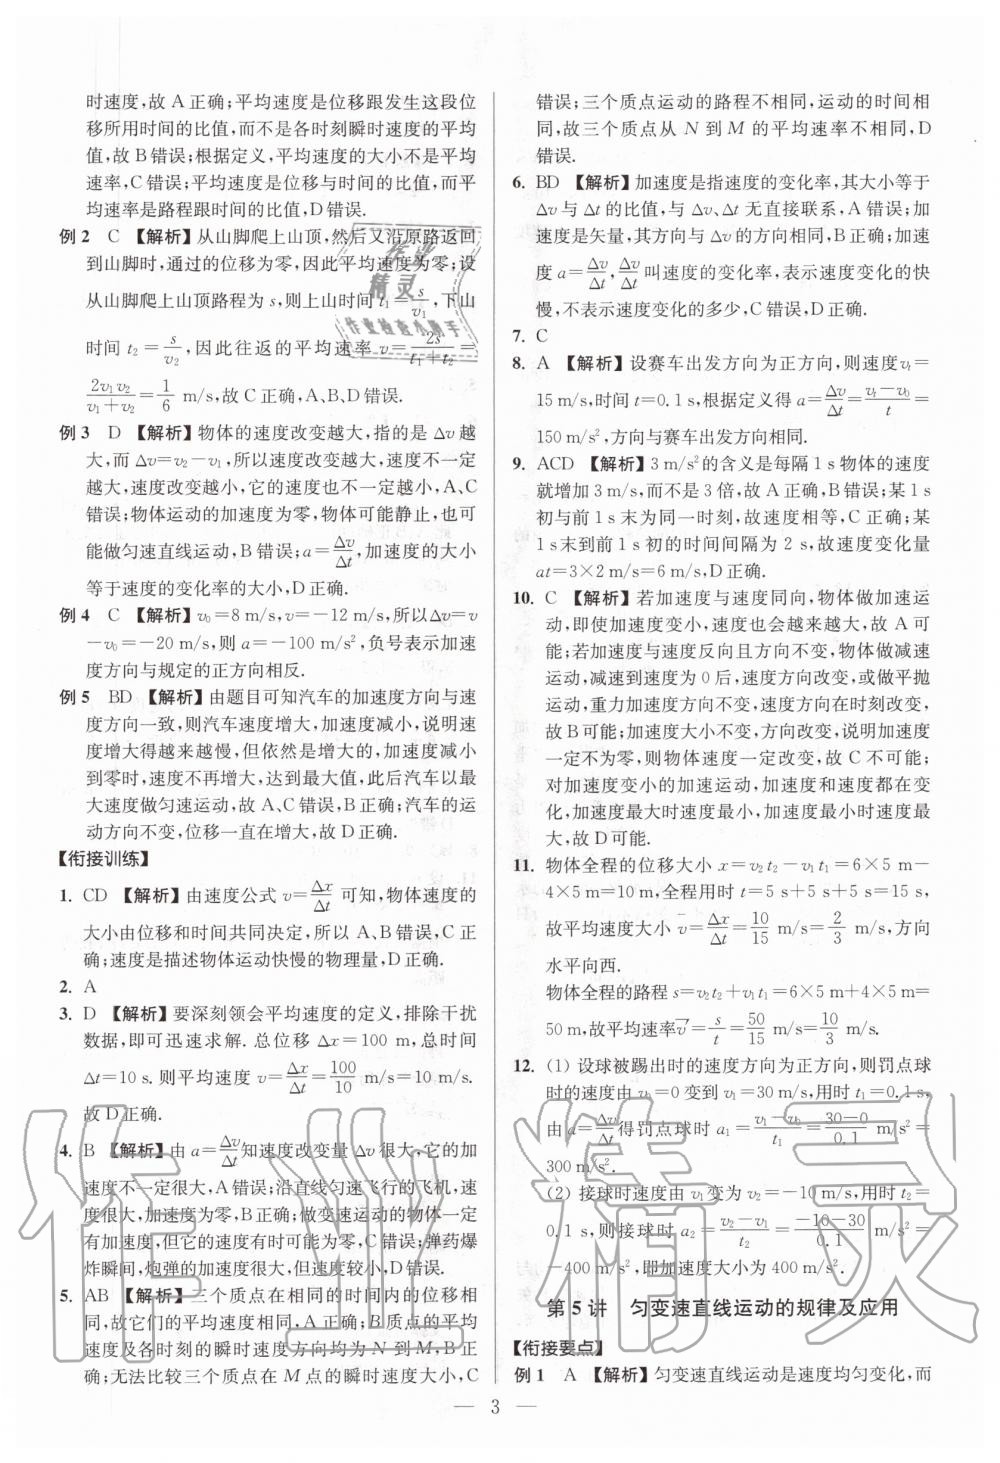 时速度,故 A 正确;平均速度是位移跟发生这段位
移所用时间的比值,而不是各时刻瞬时速度的平均
值,故 B 错误;根据定义,平均速度的大小不是平均
速率,C 错误;平均速度是位移与时间的比值,而平
均速率是路程跟时间的比值,D 错误.
例 2 C 【解析】从山脚爬上山顶,然后又沿原路返回
到山脚时,通过的位移为零,因此平均速度为零;设
从山脚爬上山顶路程为 s,则上山时间 t₁=s/v₁,下山
时间 t₂=s/v₂,因此往返的平均速率 v=2s/(t₁+t₂)=
2v₁v₂/(v₁+v₂)=1/6 m/s,故 C 正确,A、B、D 错误.
例 3 D 【解析】物体的速度改变越大,指的是 Δv 越
大,而 Δv=v₂-v₁,所以速度改变越大,速度不一定
越大,速度改变越小,它的速度也不一定越小,A、C
错误;物体运动的加速度为零,物体可能静止,也可
能做匀速直线运动,B 错误;a=Δv/Δt,加速度的大小
等于速度的变化率的大小,D 正确.
例 4 C 【解析】v₀=8 m/s,v=-12 m/s,所以Δv=v
-v₀=-20 m/s,则 a=-100 m/s²,负号表示加速
度方向与规定的正方向相反.
例 5 BD 【解析】由题目可知汽车的加速度方向与速
度方向一致,则汽车速度增大,加速度减小,说明速
度增大得越来越慢,但依然是增大的,加速度减小
到零时,速度不再增大,达到最大值,此后汽车以最
大速度做匀速运动,故 A、C 错误,B 正确;汽车的运
动方向不变,位移一直在增大,故 D 正确.
【衔接训练】
1. CD 【解析】由速度公式 v=Δx/Δt 可知,物体速度的
大小由位移和时间共同决定,所以 A、B 错误,C 正
确;速度是描述物体运动快慢的物理量,D 正确.
2. A
3. D 【解析】要深刻领会平均速度的定义,排除干扰
数据,即可迅速求解.总位移 Δx=100 m,总时间
Δt=10 s.则平均速度 v=Δx/Δt=100/10 m/s=10 m/s.
故 D 正确.
4. B 【解析】由 a=Δv/Δt知速度改变量 Δv 很大,它的加
速度不一定很大,A 错误;沿直线匀速飞行的飞机,速
度很大,加速度为零,B 正确;做变速运动的物体一定
有加速度,但它的速度有时可能为零,C 错误;弹药爆
炸瞬间,炮弹的加速度很大,但速度很小,D 错误.
5. AB 【解析】三个质点在相同的时间内的位移相
同,故它们的平均速度相同,A 正确;B质点的平均
速度及各时刻的瞬时速度方向均为 N 到 M,B 正
确;无法比较三个质点在 M 点的瞬时速度大小,C
错误;三个质点运动的路程不相同,运动的时间相
同,故三个质点从 N 到 M 的平均速率不相同,D
错误.
6. BD 【解析】加速度是指速度的变化率,其大小等于
Δv 与 Δt 的比值,与 Δv、Δt 无直接联系,A 错误;加
速度是矢量,其方向与 Δv 的方向相同,B 正确;加速
度 a=Δv/Δt,Δv/Δt叫速度的变化率,表示速度变化的快
慢,不表示速度变化的多少,C 错误,D 正确.
7. C
8. A 【解析】设赛车出发方向为正方向,则速度vₜ=
15 m/s,时间 t=0.1 s,根据定义得 a=Δv/Δt=(vₜ-v₀)/t=
150 m/s²,方向与赛车出发方向相同.
9. ACD 【解析】3 m/s²的含义是每隔 1 s 物体的速度
就增加 3 m/s,而不是 3 倍,故 A 正确,B 错误;某 1 s
初与前 1 s 末为同一时刻,故速度相等,C 正确;某
1 s末到前 1 s 初的时间间隔为 2 s,故速度变化量
at=3×2 m/s=6 m/s,D 正确.
10. C 【解析】若加速度与速度同向,物体做加速运
动,即使加速度变小,速度也会越来越大,故 A 可
能;若加速度与速度反向且方向不变,物体做减速
运动,减速到速度为 0 后,速度方向改变,或做平抛
运动,重力加速度方向不变,速度方向在时刻改变,
故 B 可能;加速度大小不变,方向改变,说明加速度
一定不为零,则物体速度一定改变,故 C 不可能;
对加速度变小的加速运动,加速度和速度都在变
化,加速度最大时速度最小,加速度最小时速度最
大,故 D 可能.
11. 物体全程的位移大小 x=v₂t₂-v₁t₁=6×5 m-
4×5 m=10 m,全程用时 t=5 s+5 s+5 s=15 s,
故平均速度大小 v̄=Δx/Δt=10/15 m/s=2/3 m/s,方向
水平向西.
物体全程的路程 s=v₂t₂+v₁t₁=6×5 m+4×5 m=
50 m,故平均速率v̄′=s/t=50/15 m/s=10/3 m/s.
12. (1) 设球被踢出时的速度方向为正方向,则罚点球
时的速度由 v₀=0 变到 v₁=30 m/s,用时 t₁=0.1 s,
由 a=Δv/Δt得罚点球时 a₁=(v₁-v₀)/t₁=(30-0)/0.1 m/s²=
300 m/s².
(2) 接球时速度由 v₁变为 v₂=-10 m/s,用时 t₂=
0.1 s,则接球时 a₂=(v₂-v₁)/t₂=(-10-30)/0.1 m/s²=
-400 m/s²,即加速度大小为 400 m/s².
第 5 讲 匀变速直线运动的规律及应用
【衔接要点】
例 1 A 【解析】匀变速直线运动是速度均匀变化,而
— 3 —
作业精灵
作业
精灵
作业检查小助手